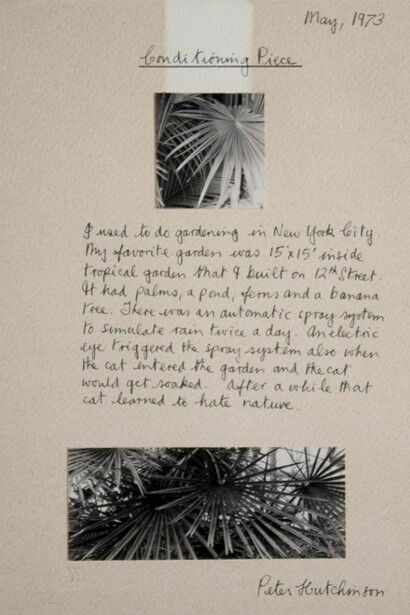 May, 1973
Conditioning Piece
I used to do gardening in New York City.
My favorite garden was 15'x15' inside
tropical garden that I built on 12th Street.
It had palms, a pond, ferns and a banana
tree. There was an automatic spray system
to simulate rain twice a day. An electric
eye triggered the spray system also when
the cat entered the garden and the cat
would get soaked. After a while that
cat learned to hate nature.
Peter Hutchinson